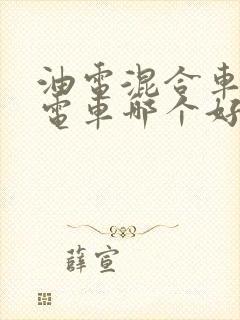 油電混合車
電車哪个好
薛宣